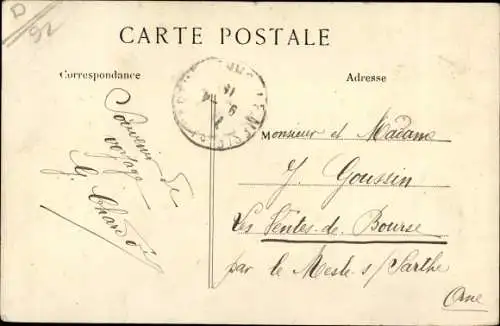 D
92
CARTE POSTALE
Correspondance
Adresse
Souvenir de
voyage
G.
Monsieur et Madame
J. Goussin
Les Ventes-de-Bourse
par le Mesle s/ Sarthe
Orne